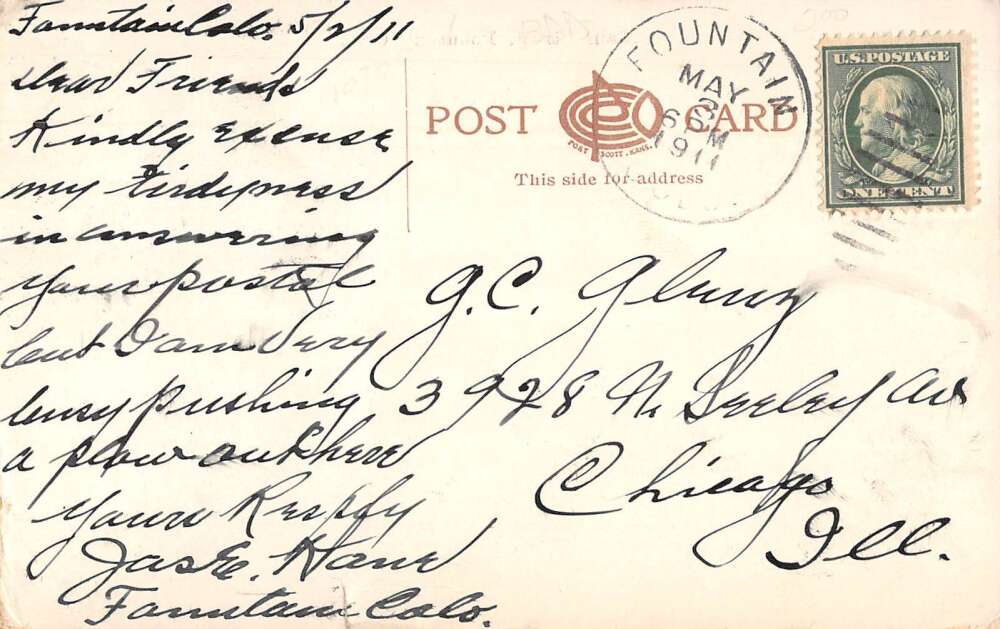 Fountain Colo. 5/2/11
Dear Friends
Kindly Excuse
my tirdyness
in answering
your postal
but I am very
busy pushing
a plow out here
Yours Respfy
Jas E. Hane
Fountain Colo.
POST CARD
FORT SCOTT, KANS.
This side for address
FOUNTAIN
MAY
2
6 PM
1911
COLO.
U.S. POSTAGE
ONE CENT
J.C.
3928 N. Seeley Ave
Chicago
Ill.